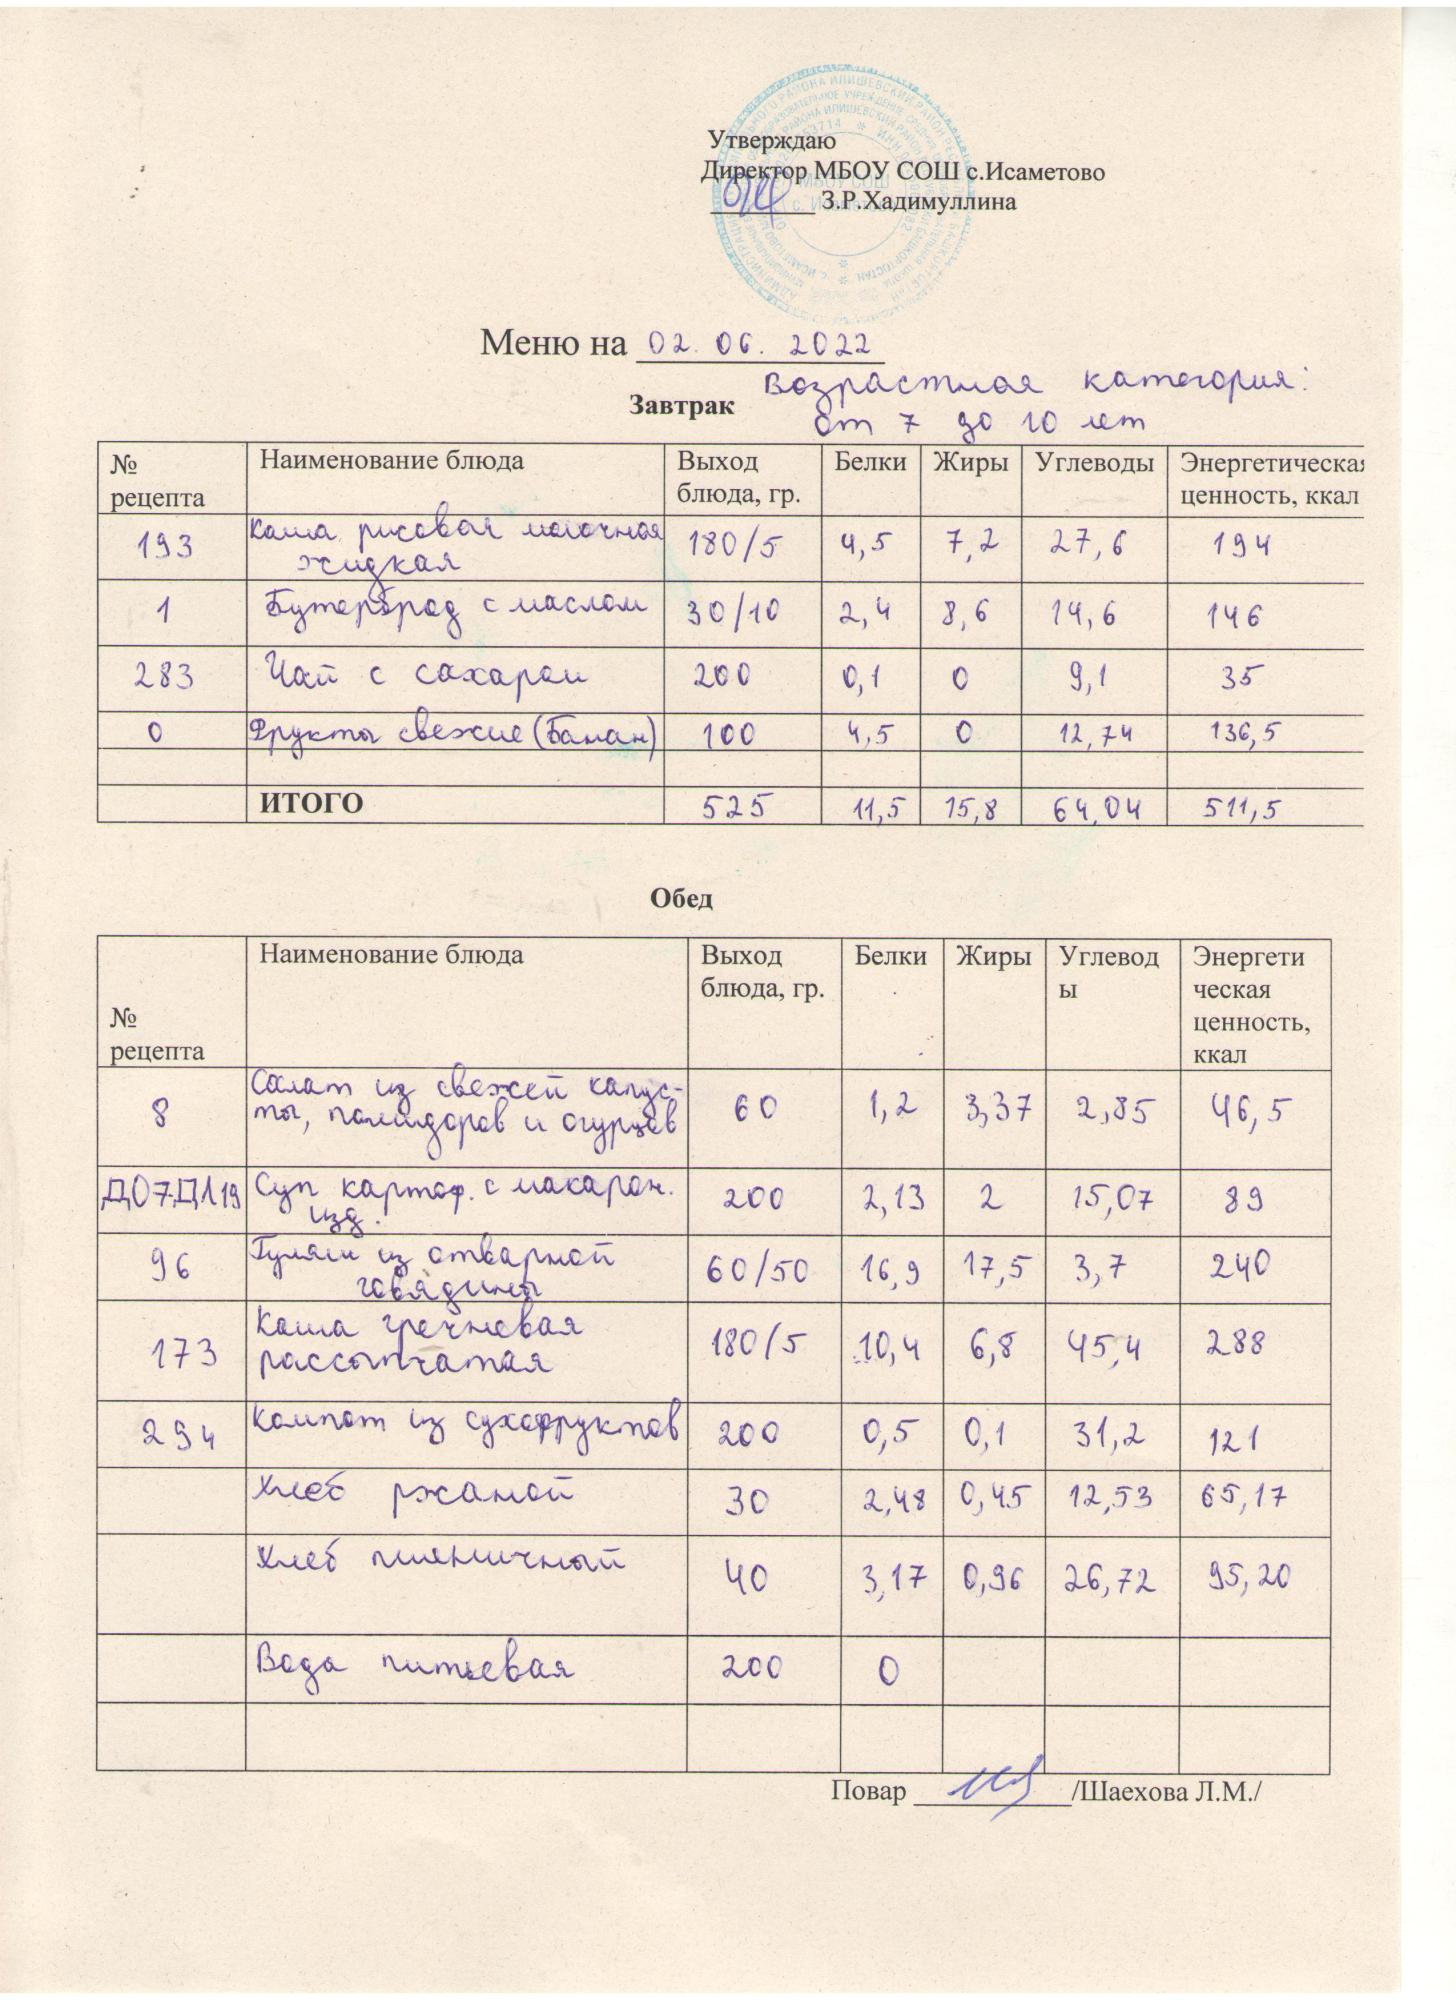 Утверждаю
Директор МБОУ СОШ с.Исаметово
З.Р.Хадимуллина
МБОУ СОШ
Меню на 02. 06. 2022
Возрастная категория:
Завтрак
от 7 до 10 лет
№ рецепта Наименование блюда Выход блюда, гр. Белки Жиры Углеводы Энергетическая ценность, ккал
193 Каша рисовая молочная жидкая 180/5 4,5 7,2 27,6 194
1 Бутерброд с маслом 30/10 2,4 8,6 14,6 146
283 Чай с сахаром 200 0,1 0 9,1 35
0 Фрукты свежие (Банан) 100 4,5 0 12,74 136,5
ИТОГО 525 11,5 15,8 64,04 511,5
Обед
№ рецепта Наименование блюда Выход блюда, гр. Белки Жиры Углеводы Энергетическая ценность, ккал
8 Салат из свежей капус-ты, помидоров и огурцов 60 1,2 3,37 2,85 46,5
Д07Д119 Суп картоф. с макарон. изд. 200 2,13 2 15,07 89
96 Гуляш из отварной говядины 60/50 16,9 17,5 3,7 240
173 Каша гречневая рассыпчатая 180/5 10,4 6,8 45,4 288
294 Компот из сухофруктов 200 0,5 0,1 31,2 121
Хлеб ржаной 30 2,48 0,45 12,53 65,17
Хлеб пшеничный 40 3,17 0,96 26,72 95,20
Вода питьевая 200 0
Повар /Шаехова Л.М./